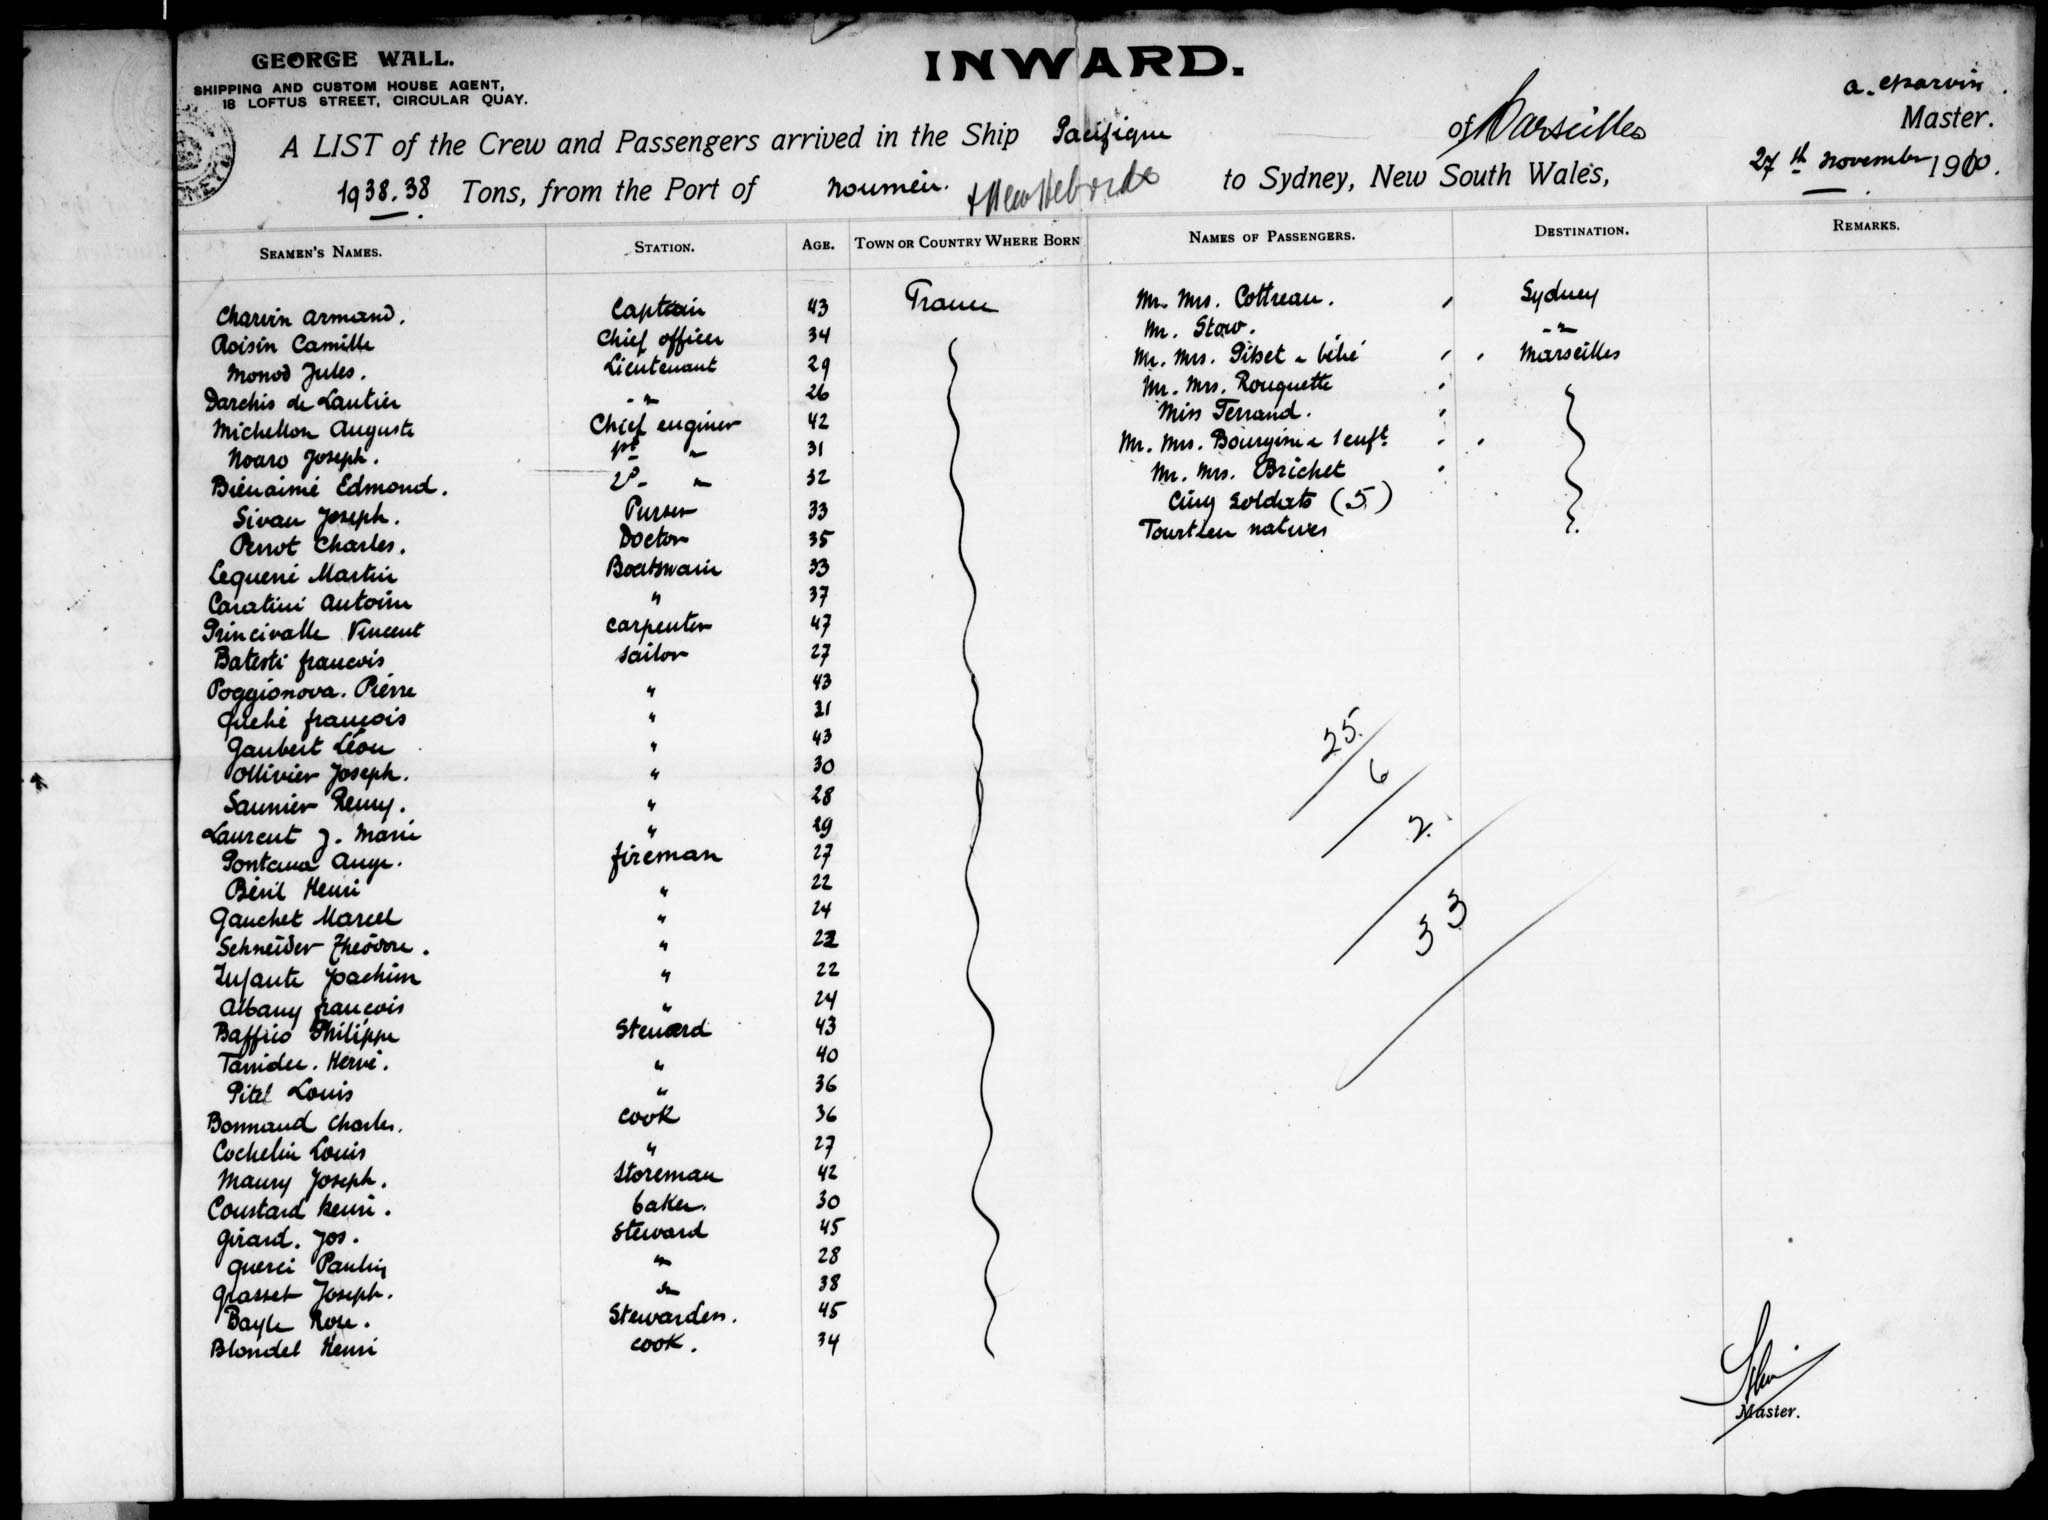 GEORGE WALL.
SHIPPING AND CUSTOM HOUSE AGENT,
18 LOFTUS STREET, CIRCULAR QUAY.
INWARD.
a. Charvin
Master.
A LIST of the Crew and Passengers arrived in the Ship Pacifique of Marseilles
1938.38 Tons, from the Port of Nouméa. + New Hebrides to Sydney, New South Wales, 27th November 1910.
SEAMEN'S NAMES. STATION. AGE. TOWN OR COUNTRY WHERE BORN NAMES OF PASSENGERS. DESTINATION. REMARKS.
Charvin Armand. Captain 43 France
Roisin Camille Chief officer 34
Monod Jules. Lieutenant 29
Darchis de Lautier -"- 26
Michellon Auguste Chief enginer 42
Noaro Joseph. 1st " 31
Bienaimé Edmond. 2d- " 32
Sivan Joseph. Purser 33
Perrot Charles. Doctor 35
Lequené Martin Boatswain 33
Caratini Antoine " 37
Princivalle Vincent Carpenter 47
Batesti francois sailor 27
Poggionova. Pierre " 43
Quéhé françois " 31
Gaubert Léon " 43
Ollivier Joseph. " 30
Saunier Remy. " 28
Laurent J. Marie " 29
Pontana Ange. fireman 27
Béril Henri " 22
Gauchet Marcel " 24
Schneider Théodore. " 22
Infante Joachim " 22
Albany francois " 24
Baffico Philippe Steward 43
Tanidec. Hervé. " 40
Pitel Louis " 36
Bonnaud Charles. Cook 36
Cochelin Louis " 27
Maury Joseph. Storeman 42
Coustard henri. baker. 30
Girard. Jos. Steward 45
Querci Paulin " 28
Grasset Joseph. " 38
Bayle Rose. Stewardess. 45
Blondel Henri cook. 34
Mr. Mrs. Cottreau. Sydney
Mr. Stow. -"-
Mr. Mrs. Pibet & bébé Marseilles
Mr. Mrs. Rouquette
Miss Ferrand.
Mr. Mrs. Bourgine & 1 enft.
Mr. Mrs. Brichet
Cinq soldats (5)
Fourteen natives
25.
6
2.
33
Master.